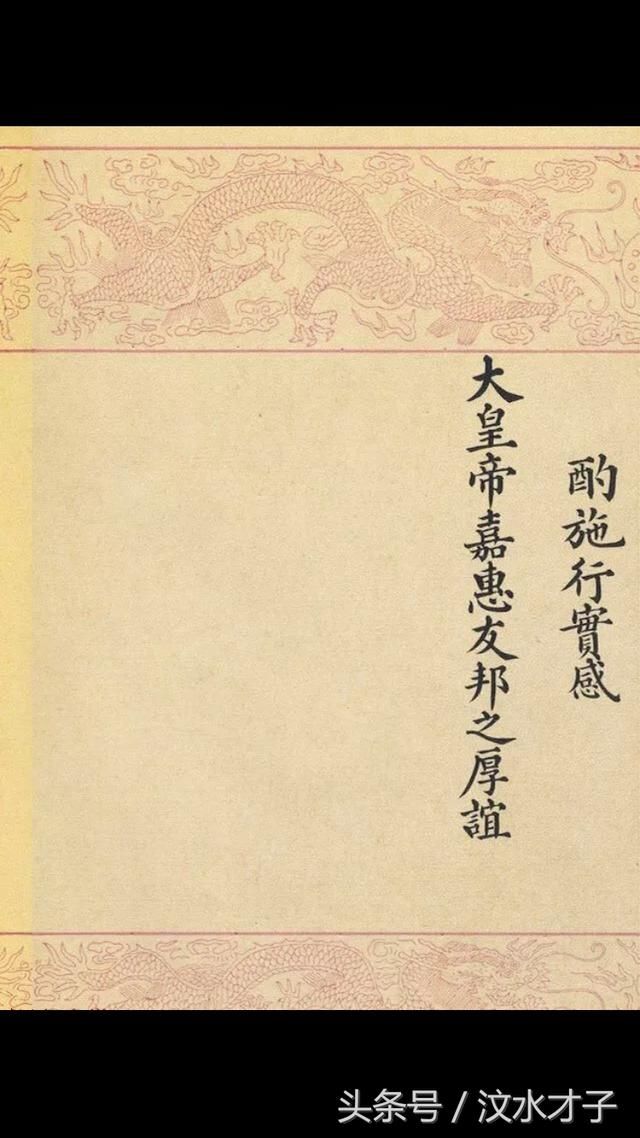 酌施行實感
大皇帝嘉惠友邦之厚誼
头条号 / 汶水才子